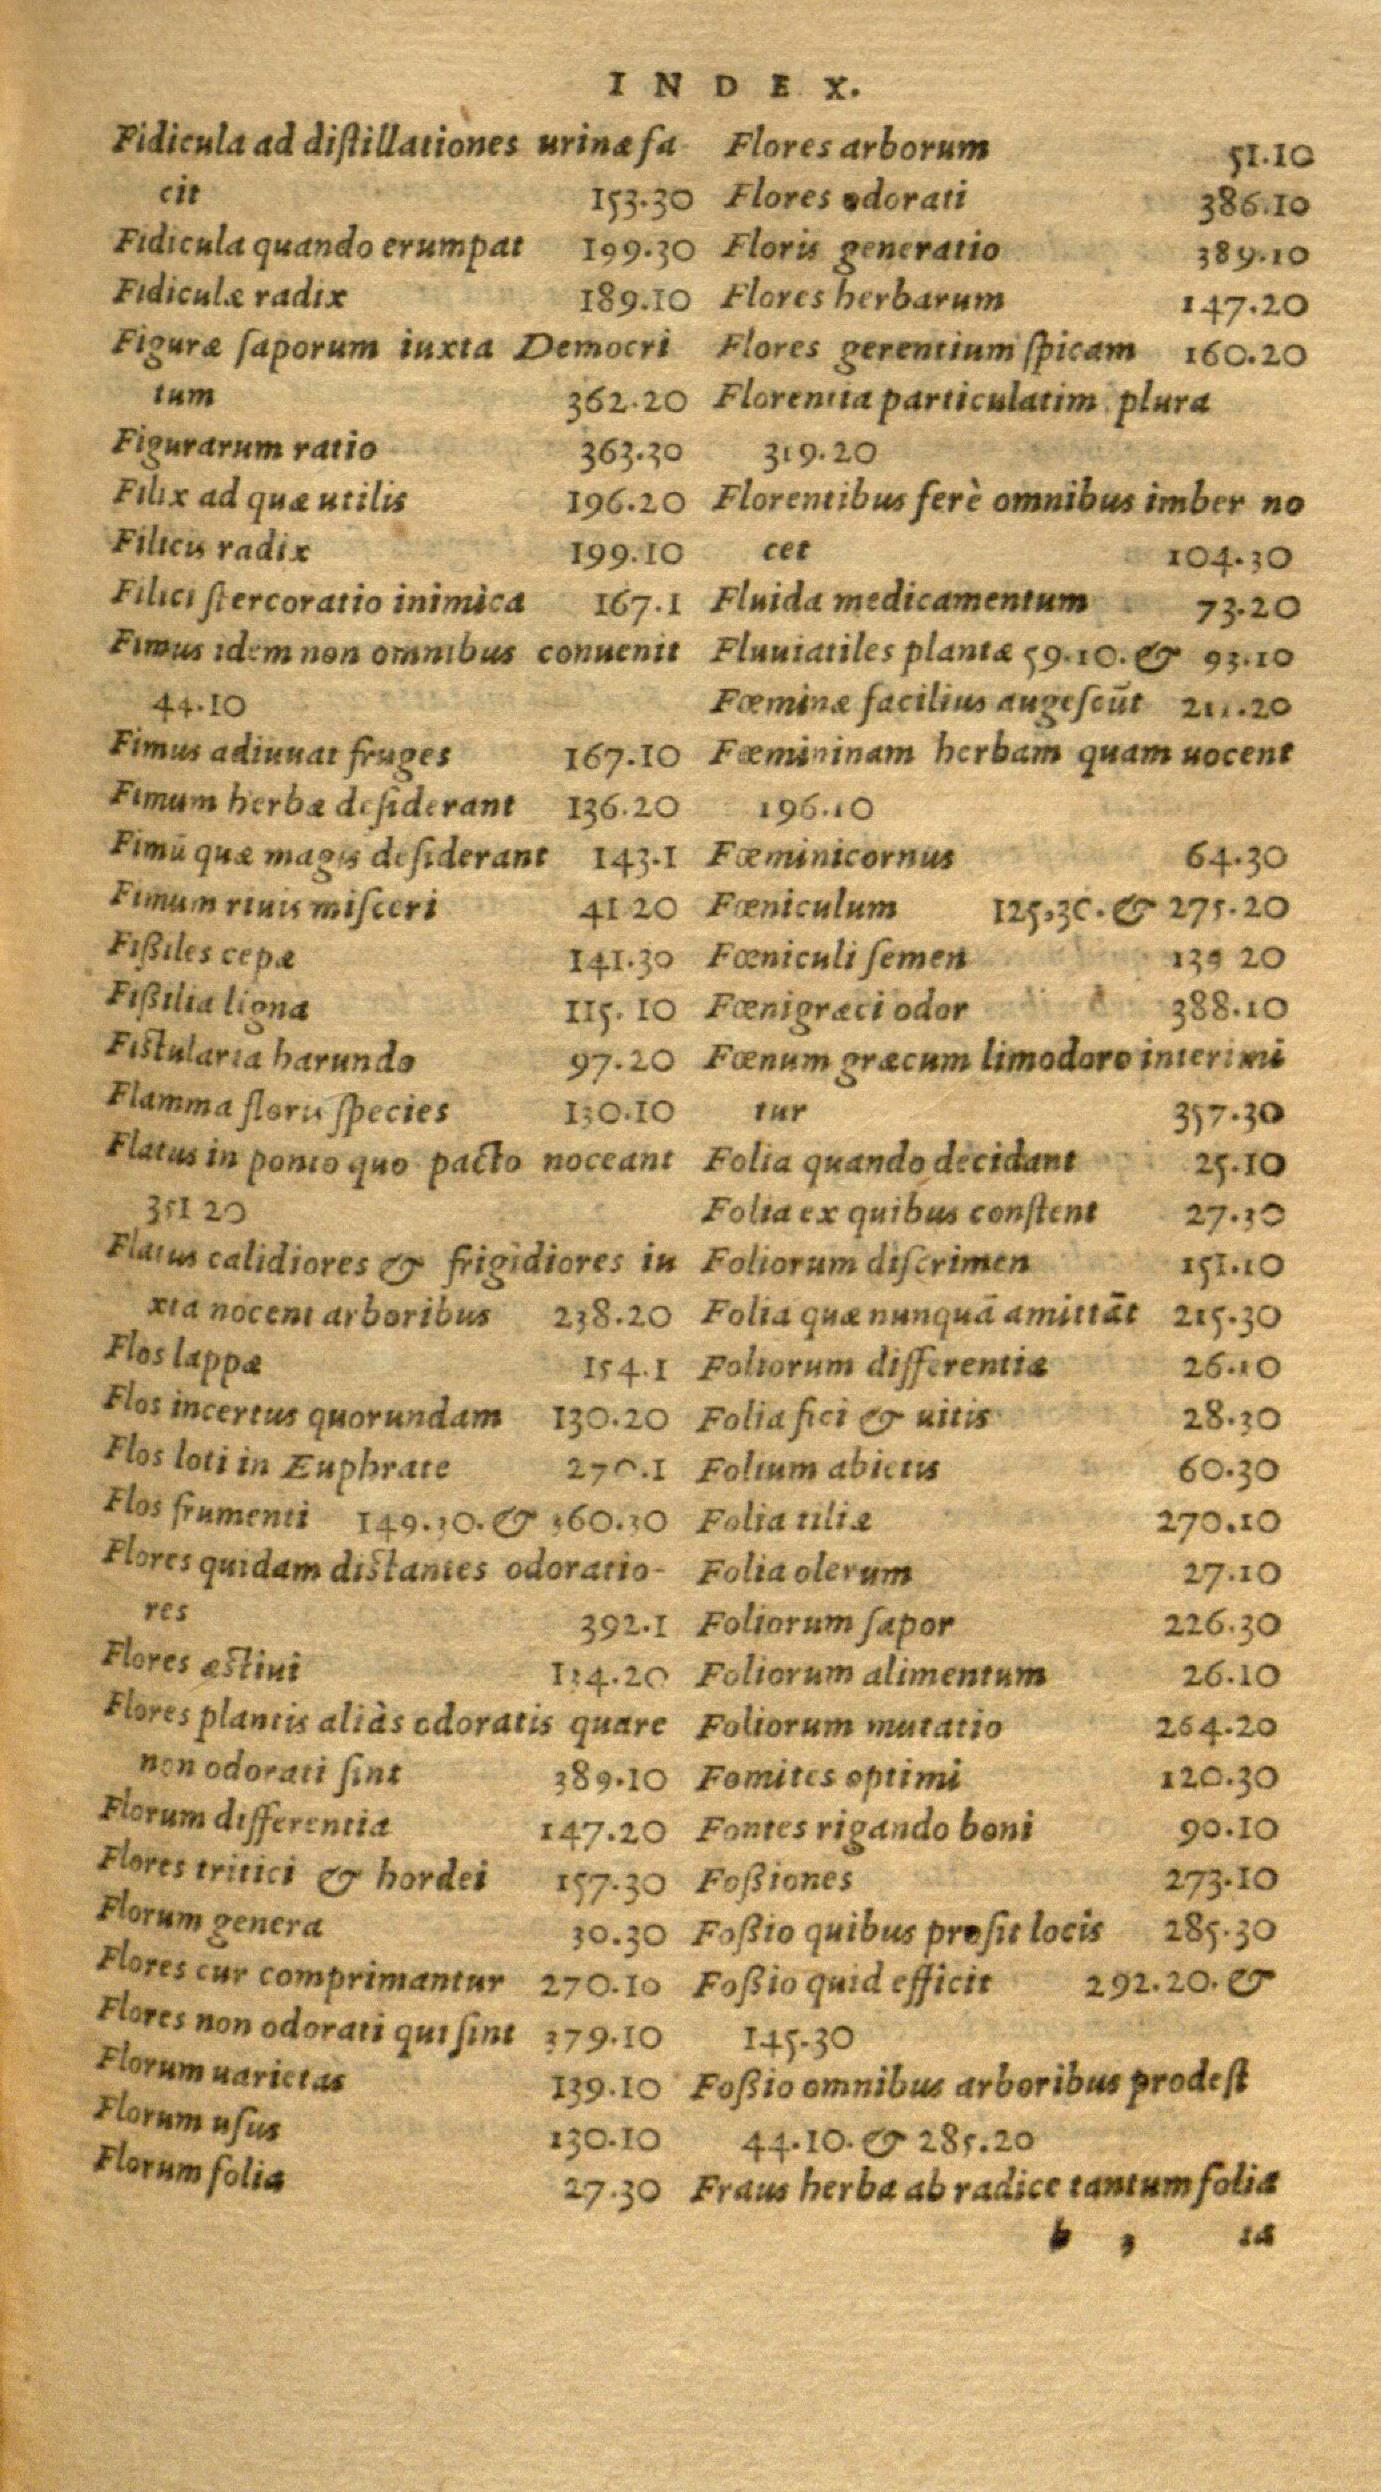 INDEX.
Fidicula ad distillationes urinæ fa
cit 153.30
Fidicula quando erumpat 199.30
Fidiculæ radix 189.10
Figuræ saporum iuxta Democri
tum 362.20
Figurarum ratio 363.30
Filix ad quæ utilis 196.20
Filicis radix 199.10
Filici stercoratio inimica 167.1
Fimus idem non omnibus conuenit
44.10
Fimus adiuuat fruges 167.10
Fimum herbæ desiderant 136.20
Fimū quæ magis desiderant 143.1
Fimum riuis misceri 41 20
Fißiles cepæ 141.30
Fißilia ligna 115.10
Fistularia harundo 97.20
Flamma floris species 130.10
Flatus in ponto quo pacto noceant
351 20
Flatus calidiores & frigidiores iu
xta nocent arboribus 238.20
Flos lappæ 154.1
Flos incertus quorundam 130.20
Flos loti in Euphrate 270.1
Flos frumenti 149.30. & 360.30
Flores quidam distantes odoratio-
res 392.1
Flores æstiui 134.20
Flores plantis aliàs odoratis quare
non odorati sint 389.10
Florum differentia 147.20
Flores tritici & hordei 157.30
Florum genera 30.30
Flores cur comprimantur 270.10
Flores non odorati qui sint 379.10
Florum uarietas 139.10
Florum usus 130.10
Florum folia 27.30
Flores arborum 51.10
Flores odorati 386.10
Floris generatio 389.10
Flores herbarum 147.20
Flores gerentium spicam 160.20
Florentia particulatim plura
319.20
Florentibus ferè omnibus imber no
cet 104.30
Fluida medicamentum 73.20
Fluuiatiles plantæ 59.10. & 93.10
Fœminæ facilius augescūt 211.20
Fœmininam herbam quam uocent
196.10
Fœminicornus 64.30
Fœniculum 125.30. & 275.20
Fœniculi semen 139 20
Fœnigræci odor 388.10
Fœnum græcum limodoro interimi
tur 357.30
Folia quando decidant 25.10
Folia ex quibus constent 27.30
Foliorum discrimen 151.10
Folia quæ nunquā amittāt 215.30
Foliorum differentiæ 26.10
Folia fici & uitis 28.30
Folium abietis 60.30
Folia tiliæ 270.10
Folia olerum 27.10
Foliorum sapor 226.30
Foliorum alimentum 26.10
Foliorum mutatio 264.20
Fomites optimi 120.30
Fontes rigando boni 90.10
Foßiones 273.10
Foßio quibus prosit locis 285.30
Foßio quid efficit 292.20. &
145.30
Foßio omnibus arboribus prodest
44.10. & 285.20
Fraus herba ab radice tantum folia
b 3 ta